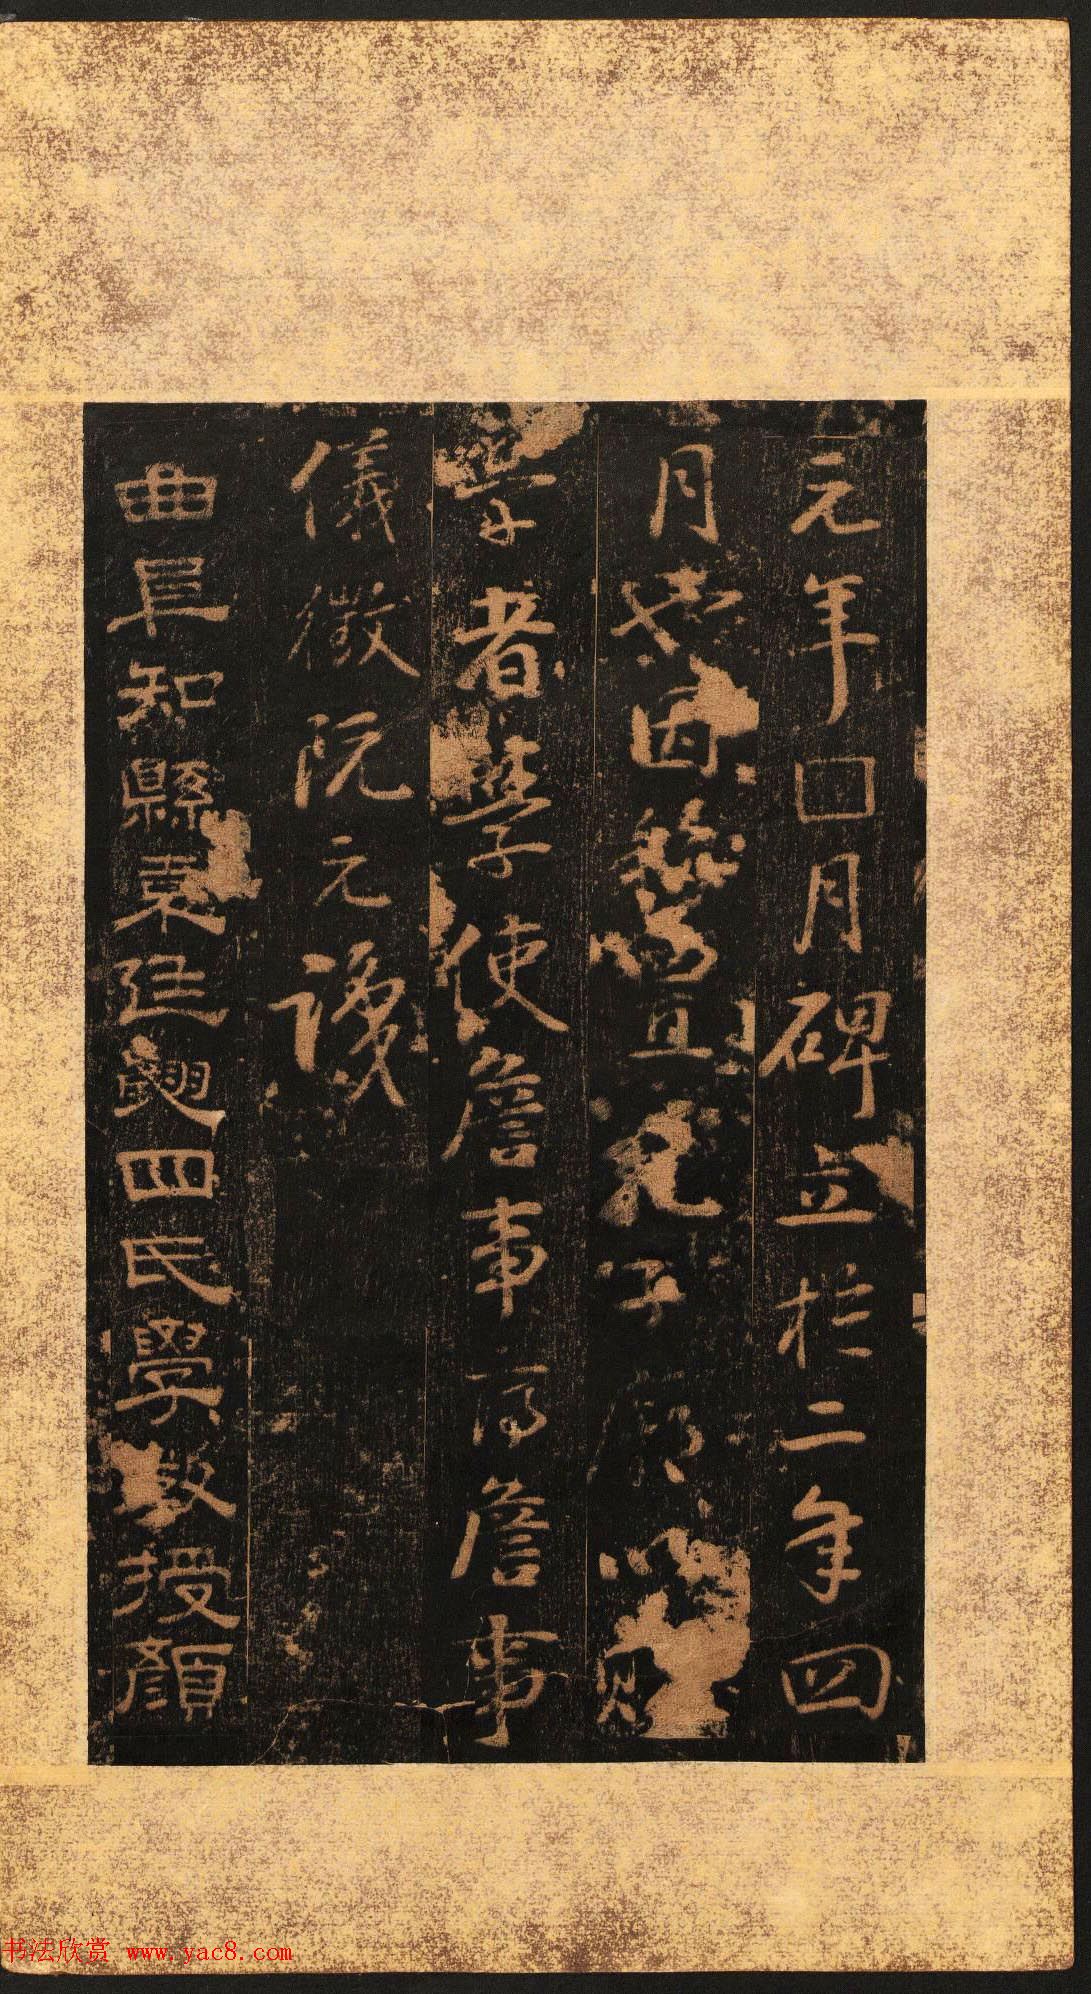 元年囗月碑立於二年四
月也因并置孔子
學者學使詹事詹事
儀徵阮元識
曲阜知縣袁廷翹四氏學教授顏
书法欣赏 www.yac8.com